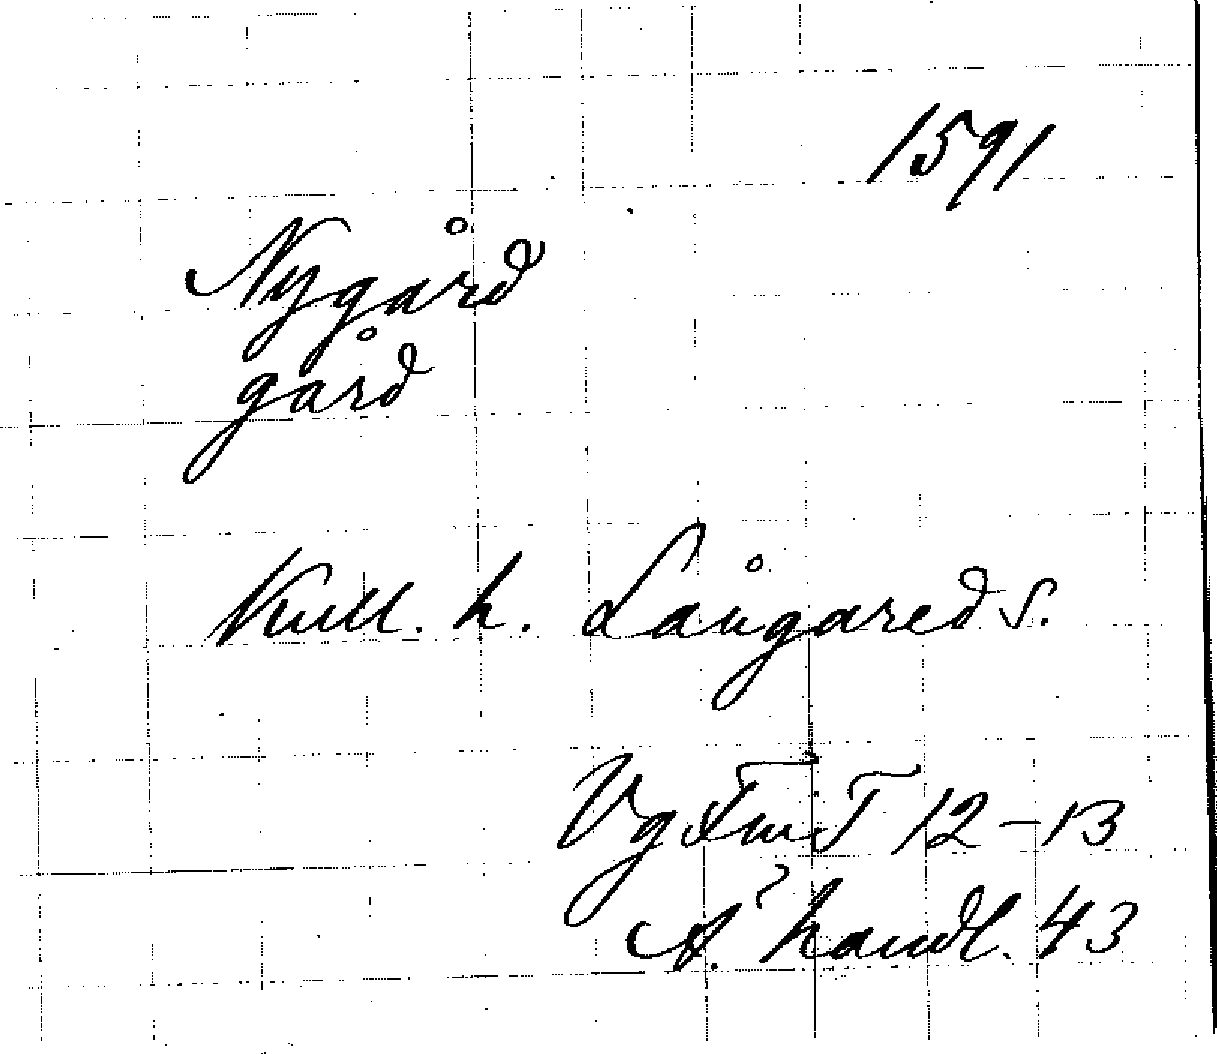 1591
Nygård
gård
Kull. h. Långared s.
Vg FmT 12-13
A. handl. 43